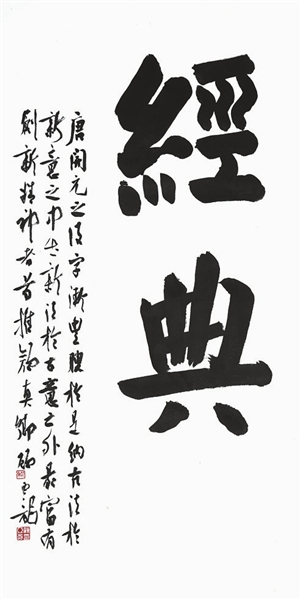 經典
唐開元之後字漸豐腴於是納古法於
新意之中生新法於古意之外最富有
創新精神者首推顏真卿